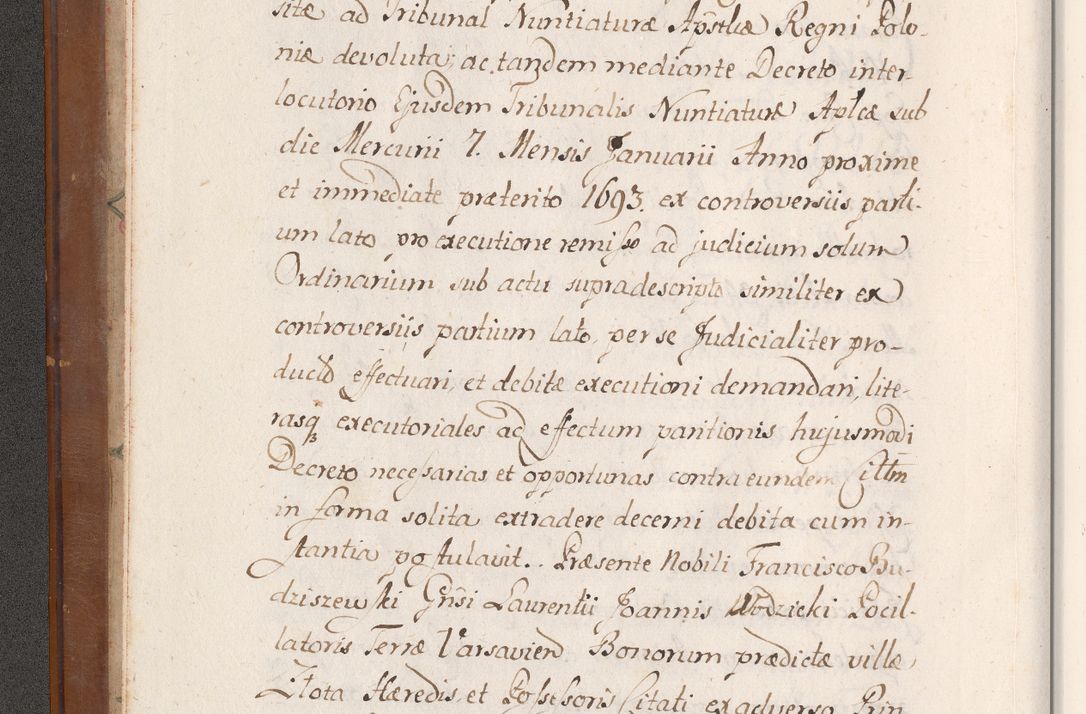 sitæ ad Tribunal Nuntiaturæ Apstlicæ Regni Polo-
niæ devoluta, ac tandem mediante Decreto inter-
locutorio Ejusdem Tribunalis Nuntiaturæ Aplcæ sub
die Mercurii 7. Mensis Januarii Anno proxime
et immediate præterito 1693. ex controversiis parti-
um lato pro executione remisso ad judicium solum
Ordinarium sub actu supradescripto similiter ex
controversiis partium lato, per se Judicialiter pro-
ducto effectuari, et debitæ executioni demandari, lite-
rasq executoriales ad effectum paritionis hujusmodi
Decreto necessarias et opportunas contra eundem Cittm
in forma solita extradere decerni debita cum in-
stantia postulavit. Præsente Nobili Francisco Bu-
dziszewski Gnsi Laurentii Joannis Wodzicki Pocil-
latoris Terræ Varsavien Bonorum prædictæ villæ
Złota Hæredis et Possessoris Citati ex adverso Prin